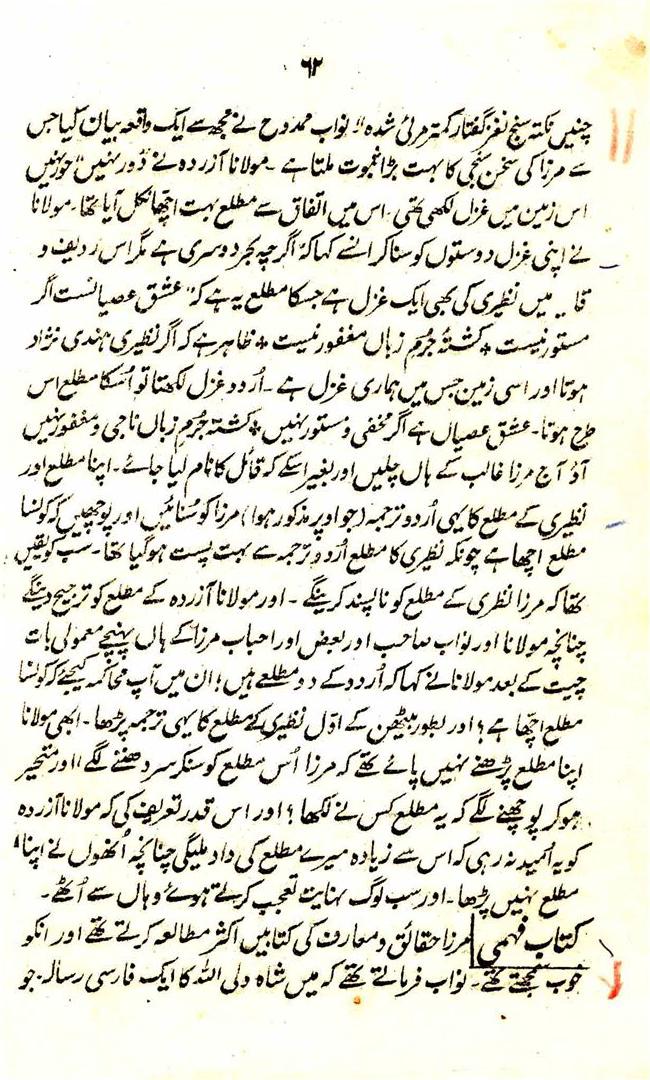 ۶۲
چنیں نکتہ سنج نغز گفتار کمتر مرئی شدہ" نواب ممدوح نے مجھسے ایک واقعہ بیان کیا جس
سے مرزا کی سخن سنجی کا بہت بڑا ثبوت ملتا ہے ۔ مولانا آزردہ نے "دُور نہیں" "حور نہیں
اس زمین میں غزل لکھی تھی ۔ اس میں اتفاق سے مطلع بہت اچھا نکل آیا تھا ۔ مولانا
نے اپنی غزل دوستوں کو سنا کر انسے کہا کہ اگرچہ بحر دوسری ہے مگر اس ردیف و
قا میں نظیری کی بھی ایک غزل ہے جسکا مطلع یہ ہے کہ" عشق عصیانست اگر
مستور نیست * کشتۂ جرمِ زباں مغفور نیست * ظاہر ہے کہ اگر نظیری ہندی نژاد
ہوتا اور اسی زمین جس میں ہماری غزل ہے ۔ اُردو غزل لکھتا تو اُسکا مطلع اس
طرح ہوتا ۔ عشق عصیاں ہے اگر مخفی و مستور نہیں * کشتہ جُرمِ زباں ناجی و مغفور نہیں
آؤ آج مرزا غالب کے ہاں چلیں اور بغیر اسکے کہ قائل کا نام لیا جائے ۔ اپنا مطلع اور
نظیری کے مطلع کا یہی اُردو ترجمہ (جو اوپر مذکور ہوا) مرزا کو سُنائیں اور پوچھیں کہ کونسا
مطلع اچھا ہے چونکہ نظیری کا مطلع اُردو ترجمہ سے بہت پست ہوگیا تھا ۔ سب کو یقین
تھا کہ مرزا نظری کے مطلع کو ناپسند کرینگے ۔ اور مولانا آزردہ کے مطلع کو ترجیح دینگے
چنانچہ مولانا اور نواب صاحب اور بعض اور احباب مرزا کے ہاں پہنچے معمولی بات
چیت کے بعد مولانا نے کہا کہ اُردو کے دو مطلعے ہیں؛ ان میں آپ محاکمہ کیجئے کہ کونسا
مطلع اچھا ہے؟ اور بطور بیٹھن کے اوّل نظیری کے مطلع کا یہی ترجمہ پڑھا ۔ ابھی مولانا
اپنا مطلع پڑھنے نہیں پائے تھے کہ مرزا اُس مطلع کو سنکر سر دھننے لگے، اور متحیر
ہو کر پوچھنے لگے کہ یہ مطلع کس نے لکھا؟ اور اس قدر تعریف کی کہ مولانا آزردہ
کو یہ اُمید نہ رہی کہ اس سے زیادہ میرے مطلع کی داد ملیگی چنانچہ اُنھوں نے اپنا
مطلع نہیں پڑھا ۔ اور سب لوگ نہایت تعجب کرتے ہوئے وہاں سے اُٹھے ۔
کتاب فہمی مرزا حقائق و معارف کی کتابیں اکثر مطالعہ کرتے تھے اور انکو
خوب سمجھتے تھے ۔ نواب فرماتے تھے کہ میں شاہ ولی اللہ کا ایک فارسی رسالہ جو